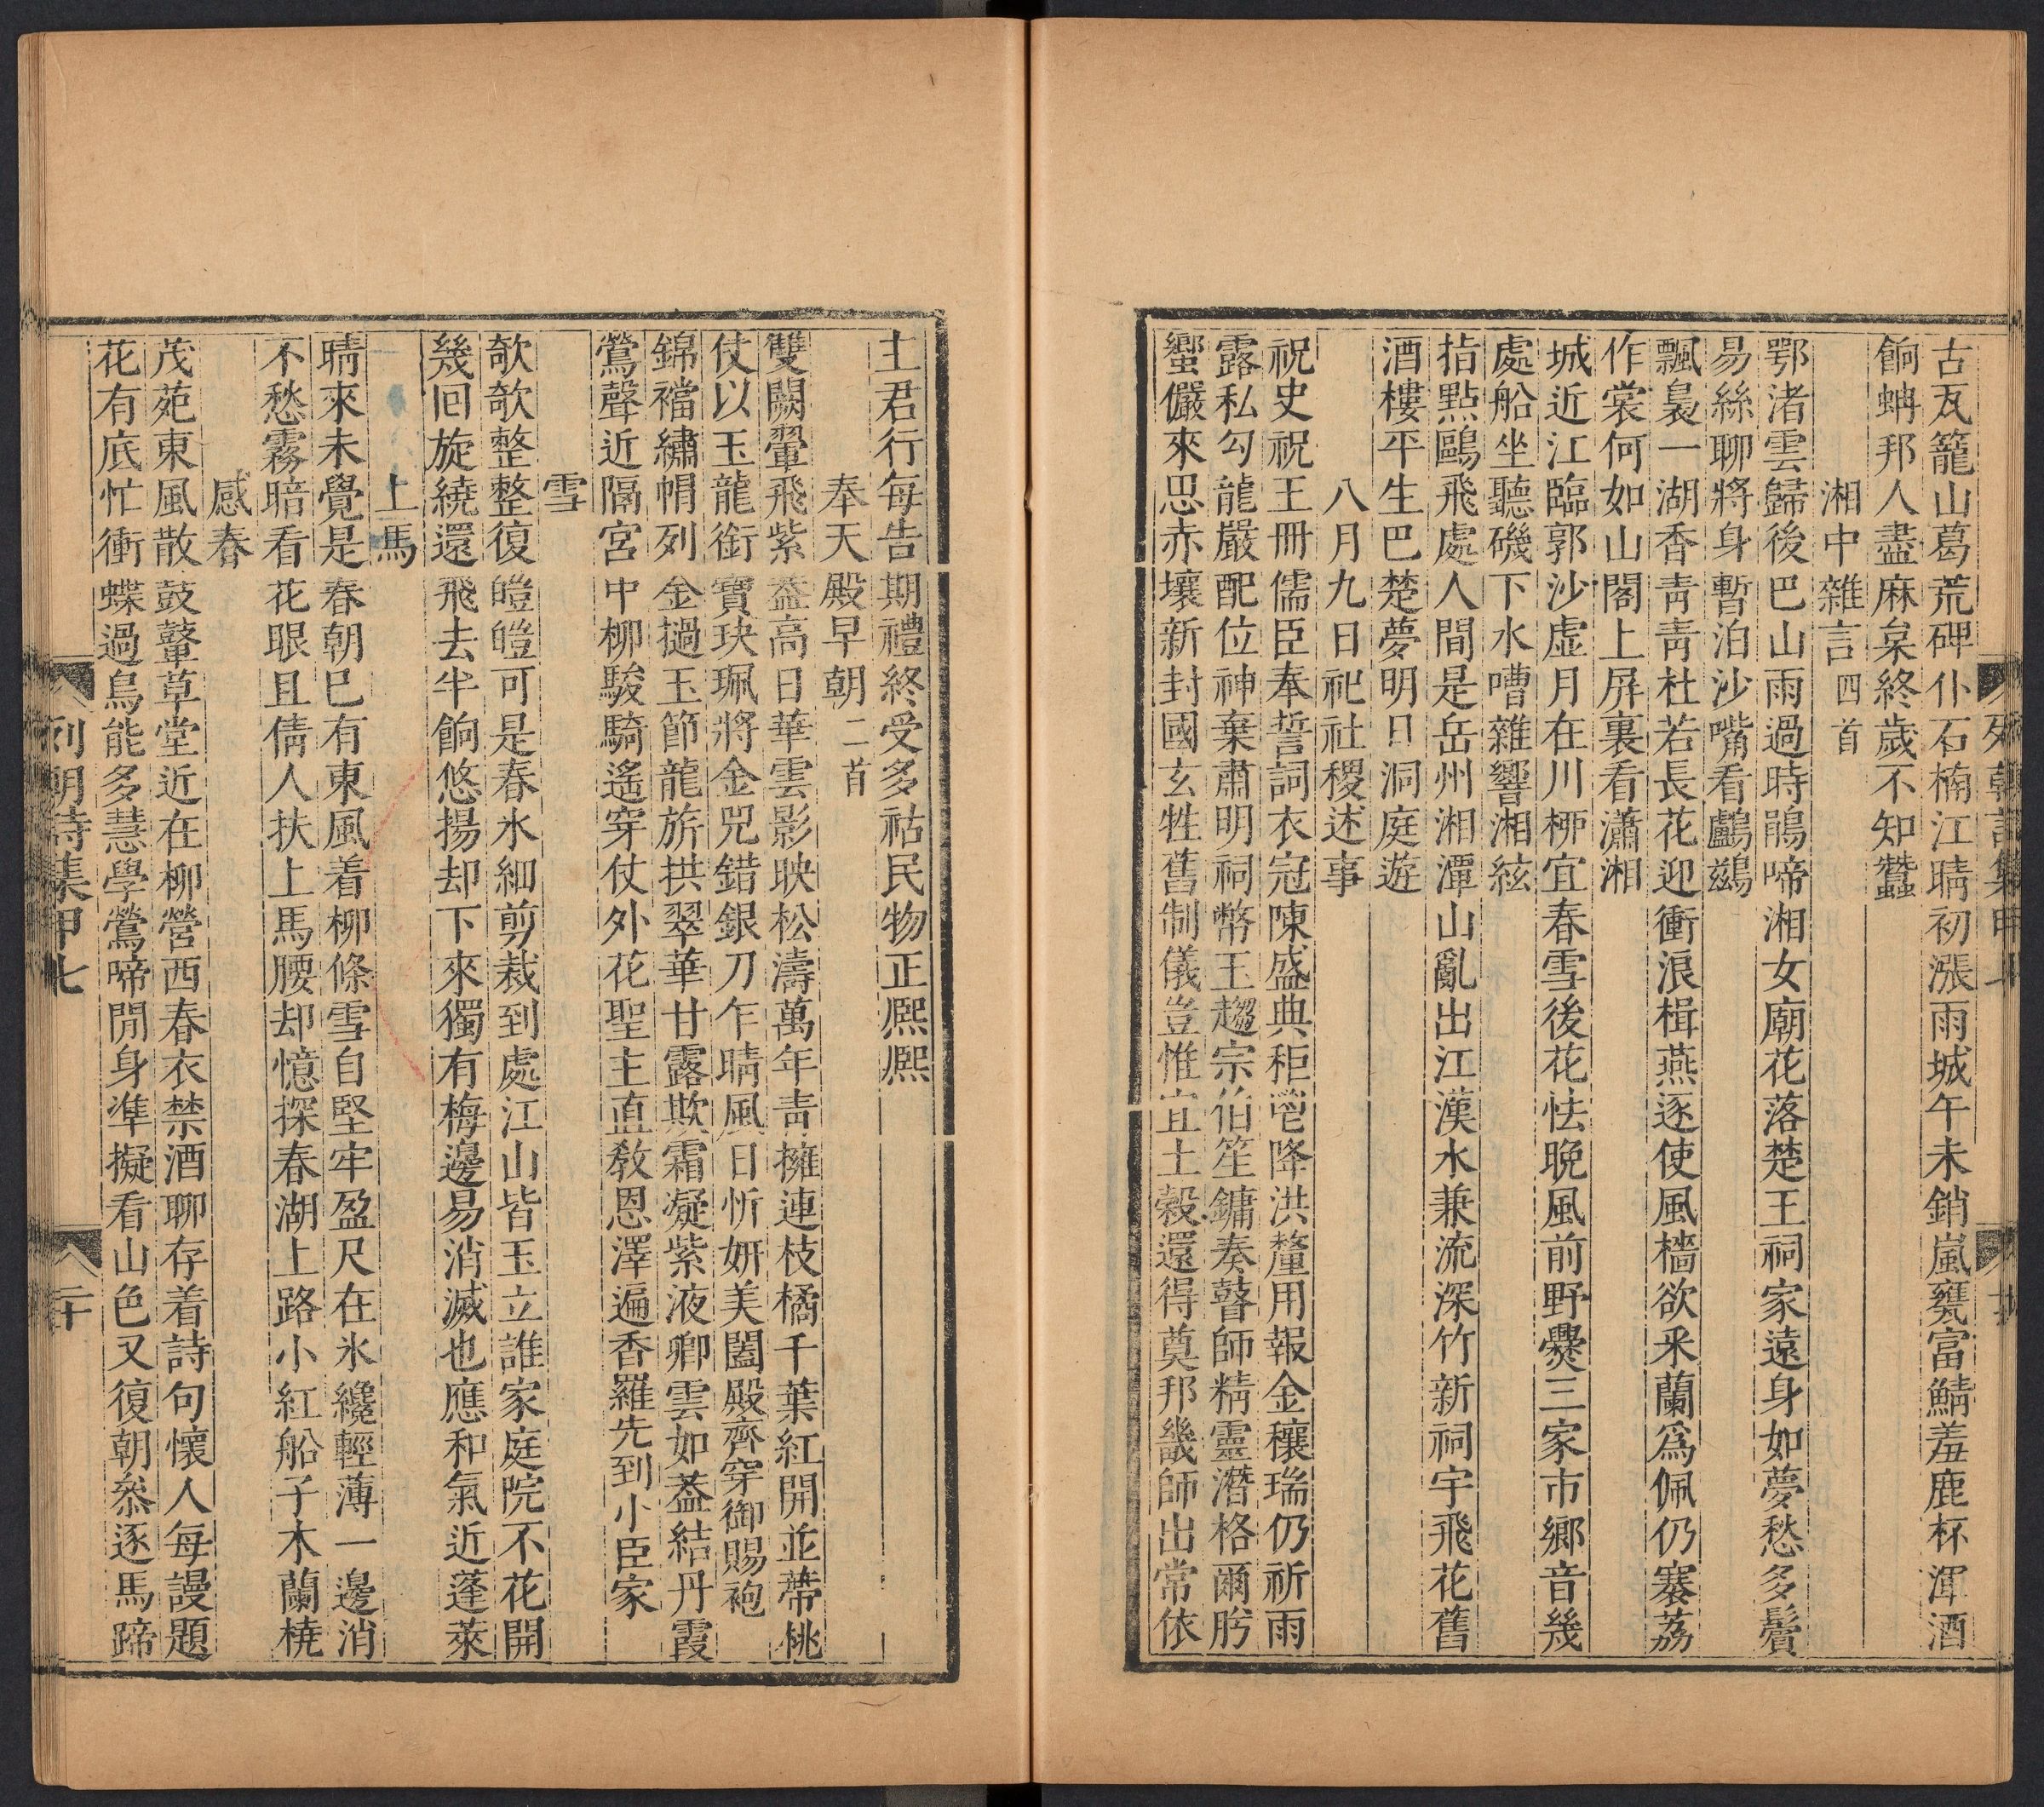 古瓦籠山葛荒碑仆石楠江晴初漲雨城午未銷嵐甕富鯖羞鹿杯渾酒
餉蚺邦人盡麻枲終歲不知蠶
湘中雜言四首
鄂渚雲歸後巴山雨過時鵑啼湘女廟花落楚王祠家遠身如夢愁多鬢
易絲聊將身暫泊沙嘴看鸕鷀
飄裊一湖香青青杜若長花迎衝浪楫燕逐使風檣欲釆蘭爲佩仍搴荔
作裳何如山閣上屏裏看瀟湘
城近江臨郭沙虛月在川栁宜春雪後花怯晚風前野爨三家市鄉音幾
處船坐聽磯下水嘈雜響湘絃
指點鷗飛處人間是岳州湘潭山亂出江漢水兼流深竹新祠宇飛花舊
酒樓平生巴楚夢明日洞庭遊
八月九日祀社稷述事
祝史祝王冊儒臣奉誓詞衣冠陳盛典秬鬯降洪釐用報金穰瑞仍祈雨
露私勾龍嚴配位神棄肅明祠幣玉趨宗伯笙鏞奏瞽師精靈潛格爾肹
蠁儼來思赤壤新封國玄牲舊制儀豈惟宜土穀還得奠邦畿師出常依
列朝詩集甲七
土君行每告期禮終受多祜民物正熈熈
奉天殿早朝二首
雙闕翬飛紫葢高日華雲影映松濤萬年青擁連枝橘千葉紅開並蔕桃
仗以玉龍銜寶玦珮將金兕錯銀刀乍晴風日忻妍美闔殿齊穿御賜袍
錦襠繡帽列金撾玉節龍旂拱翠華甘露欺霜凝紫液卿雲如葢結丹霞
鶯聲近隔宮中柳駿騎遙穿仗外花聖主直敎恩澤遍香羅先到小臣家
雪
欹欹整整復皚皚可是春氷細剪裁到處江山皆玉立誰家庭院不花開
幾回旋繞還飛去半餉悠揚却下來獨有梅邊易消滅也應和氣近蓬萊
上馬
晴來未覺是春朝已有東風着柳條雪自堅牢盈尺在氷纔輕薄一邊消
不愁霧暗看花眼且倩人扶上馬腰却憶探春湖上路小紅船子木蘭橈
感春
茂苑東風散鼓鼙草堂近在柳營西春衣禁酒聊存着詩句懷人每謾題
花有底忙衝蝶過鳥能多慧學鶯啼閒身準擬看山色又復朝叅逐馬蹄
列朝詩集甲七
二十